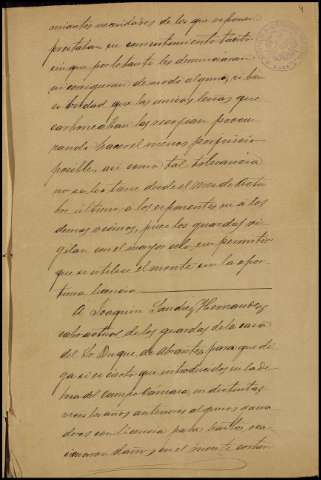 miantes necesidades de los que exponen
prestaban su consentimiento tacito
sin que por lo tanto les denunciaran
ni corrigieran de modo alguno; si bien
es verdad que las unicas leñas que
carboneaban las recogian procu-
rando hacer el menos perjuicio
posible, asi como tal tolerancia
no se les tiene desde el mes de Octu-
bre último a los esponentes ni á los
demas vecinos, pues los guardas vi-
gilan con el mayor celo, sin permitir
que se utilice el monte sin la opor-
tuna licencia
A Joaquin Sandez Hernandez
cabo actual de los guardas de la casa
del Sr Duque de Abrantes para que di-
ga si es cierto que introducidos en la de-
hesa del Campo Cámara, en distintas
veces los años anteriores algunos gana-
deros con licencia para hacerlo oca-
sionaron daños en el monte cortan